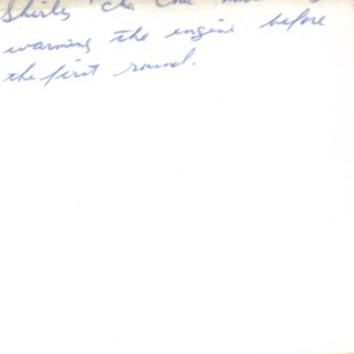 Shirley
warming the engine before
the first round.